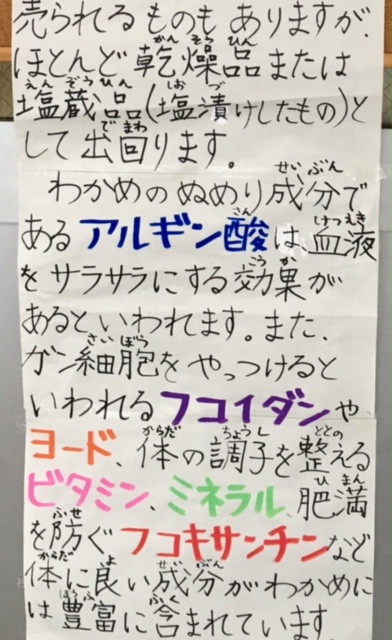 売られるものもありますが、
ほとんど乾燥品または
塩蔵品(塩漬けしたもの)と
して出回ります。
わかめのぬめり成分で
あるアルギン酸は血液
をサラサラにする効果が
あるといわれます。また、
ガン細胞をやっつけると
いわれるフコイダンや
ヨード、体の調子を整える
ビタミン、ミネラル、肥満
を防ぐフコキサンチンなど
体に良い成分がわかめに
は豊富に含まれています。